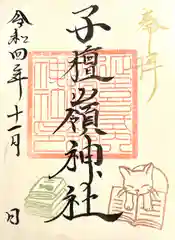 奉拝
子檀嶺神社
令和四年十一月 日